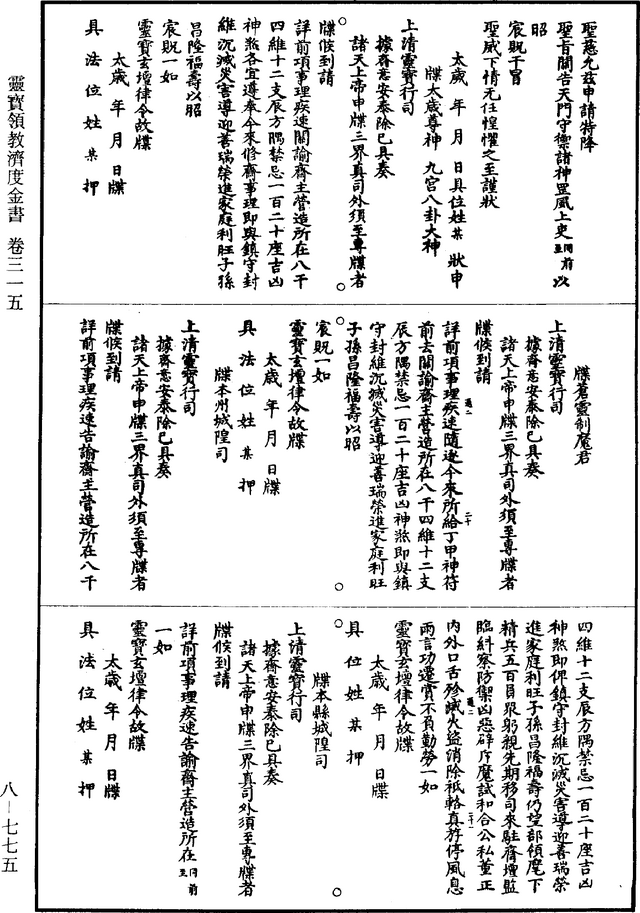 聖慈允茲申請特降
聖旨關告天門守禦諸神罡風上吏同前以至
昭
宸貺干冒
聖威下情無任惶懼之至謹狀
太歲 年 月 日具位姓某 狀申
牒太歲尊神 九宮八卦大神
上清靈寶行司
據齋意安泰除已具奏
諸天上帝申牒三界真司外須至專牒者
牒候到請
詳前項事理疾速關諭齋主營造所在八干
四維十二支辰方隅禁忌一百二十座吉凶
神煞各宜遵奉今來修齋事理即與鎮守封
維沉滅災害導迎善瑞榮進家庭利旺子孫
昌隆福壽以昭
宸貺一如
靈寶玄壇律令故牒
太歲 年 月 日牒
具 法 位 姓 某 押
牒蒼靈制魔君
上清靈寶行司
據齋意安泰除已具奏
諸天上帝申牒三界真司外須至專牒者
牒候到請
詳前項事理疾速隨逐今來所給丁甲神符
前去關諭齋主營造所在八干四維十二支
辰方隅禁忌一百二十座吉凶神煞即與鎮
守封維沉滅災害導迎善瑞榮進家庭利旺
子孫昌隆福壽以昭
宸貺一如
靈寶玄壇律令故牒
太歲 年 月 日牒
具 法 位 姓 某 押
牒本州城隍司
上清靈寶行司
據齋意安泰除已具奏
諸天上帝申牒三界真司外須至專牒者
牒候到請
詳前項事理疾速告諭齋主營造所在八干
四維十二支辰方隅禁忌一百二十座吉凶
神煞即俾鎮守封維沉滅災害導迎善瑞榮
進家庭利旺子孫昌隆福壽仍望部領麾下
精兵五百員眾躬親先期移司來駐齋壇監
臨糾察防禦凶惡辟斥魔試和合公私董正
內外口舌殄滅火盜消除祗輅真斿停風息
雨言功遷賞不負勤勞一如
靈寶玄壇律令故牒
太歲 年 月 日牒
具 位 姓 某 押
牒本縣城隍司
上清靈寶行司
據齋意安泰除已具奏
諸天上帝申牒三界真司外須至專牒者
牒候到請
詳前項事理疾速告諭齋主營造所在同前至
一如
靈寶玄壇律令故牒
太歲 年 月 日牒
具 法 位 姓 某 押
靈寶領教濟度金書 卷三一五
八—七七五